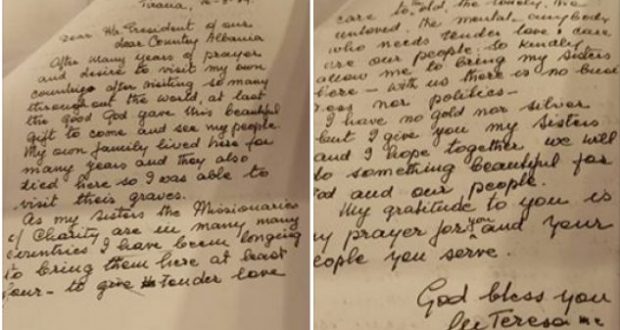 Tirana,
Dear Mr President of our
dear Country Albania
After many years of prayer
and desire to visit my own
country after visiting so many
throughout the world, at last
the good God gave this beautiful
gift to come and see my people
My own family lived here for
many years and they also
died here so I was able to
visit their graves.
As my sisters the Missionaries
of Charity are in many many
countries I have been longing
to bring them here at least
four - to give tender love
care to old, the lonely, the
unloved, the mental - anybody
who needs tender love & care
are our people. So kindly
allow me to bring my sisters
here - with us there is no busi
ness nor politics -
I have no gold nor silver
but I give you my sisters
and I hope together we will
do something beautiful for
God and our people.
My gratitude to you is
my prayer for you and your
people you serve.
God bless you
Teresa mc